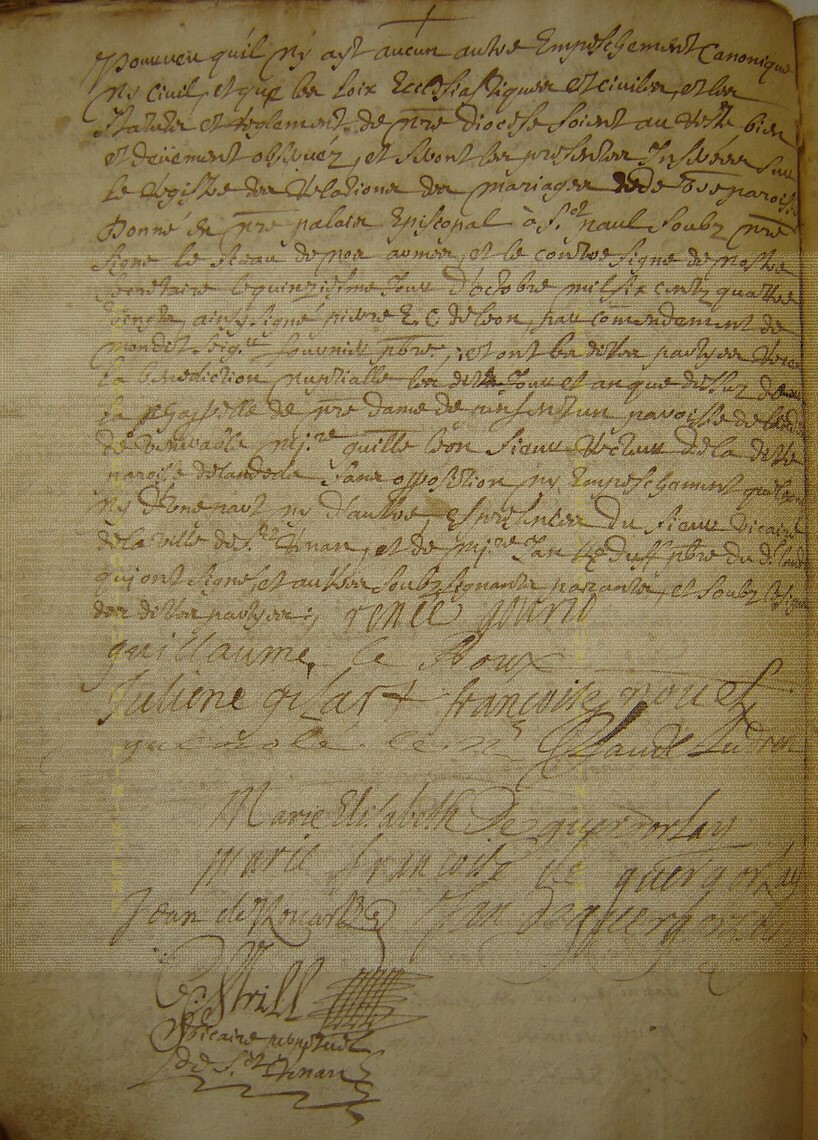 Pourveu qu'il n'y ayt aucun autre Empeschement Canonique
ny civil, et que les loix Ecclesiastiques et civiles, et les
statuts et reglements de nre diocese soient au reste bien
et deüement observéz, et seront les presentes Inserées sur
le registre des relations des mariages de vre paroisse
Donné en nre palais Episcopal à St. paul soubz nre
signe le sceau de nos armes, et le contre signe de nostre
secretaire le quinziesme Jour d'octobre mil six centz quattre
vingts, ainsy signé pierre E. C. de leon, par comendement de
mondit seigr. pbre. ; et ont les dittes partyes receu
la benediction nuptialle les dits Jour et an que dessus dans
la chappelle de nre dame de paroisse de
de venerable mire guille leon sieur recteur de la ditte
paroisse delandeda sans opposition ny Empeschement
ny d'une part ny d'autre, Es presences du sieur vicaire
de la ville de St. renan, et de mire Jan pbre du dt.
qui ont signé, et autres soubzsignants parants, et soubz le signe
des dittes partyes ;, renée
guillaume le Roux
Juliene gilart françoise nouel
le Claude
Marie Elisabeth De quergorlay
marie francoise de quergorlay
Jean Jan de quergorlay
vicaire perpetuel
de St. renan